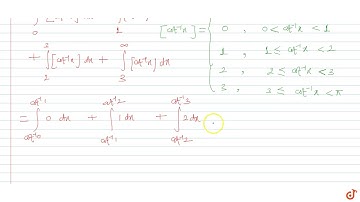 0 1 [cot⁻¹x] = { 0 , 0 < cot⁻¹x < 1
+ ∫₂³ [cot⁻¹x] dx + ∫₃^∞ [cot⁻¹x] dx
1 , 1 ≤ cot⁻¹x < 2
2 , 2 ≤ cot⁻¹x < 3
3 , 3 ≤ cot⁻¹x < π
= ∫_{cot⁻¹0}^{cot⁻¹1} 0 dx + ∫_{cot⁻¹1}^{cot⁻¹2} 1 dx + ∫_{cot⁻¹2}^{cot⁻¹3} 2 dx